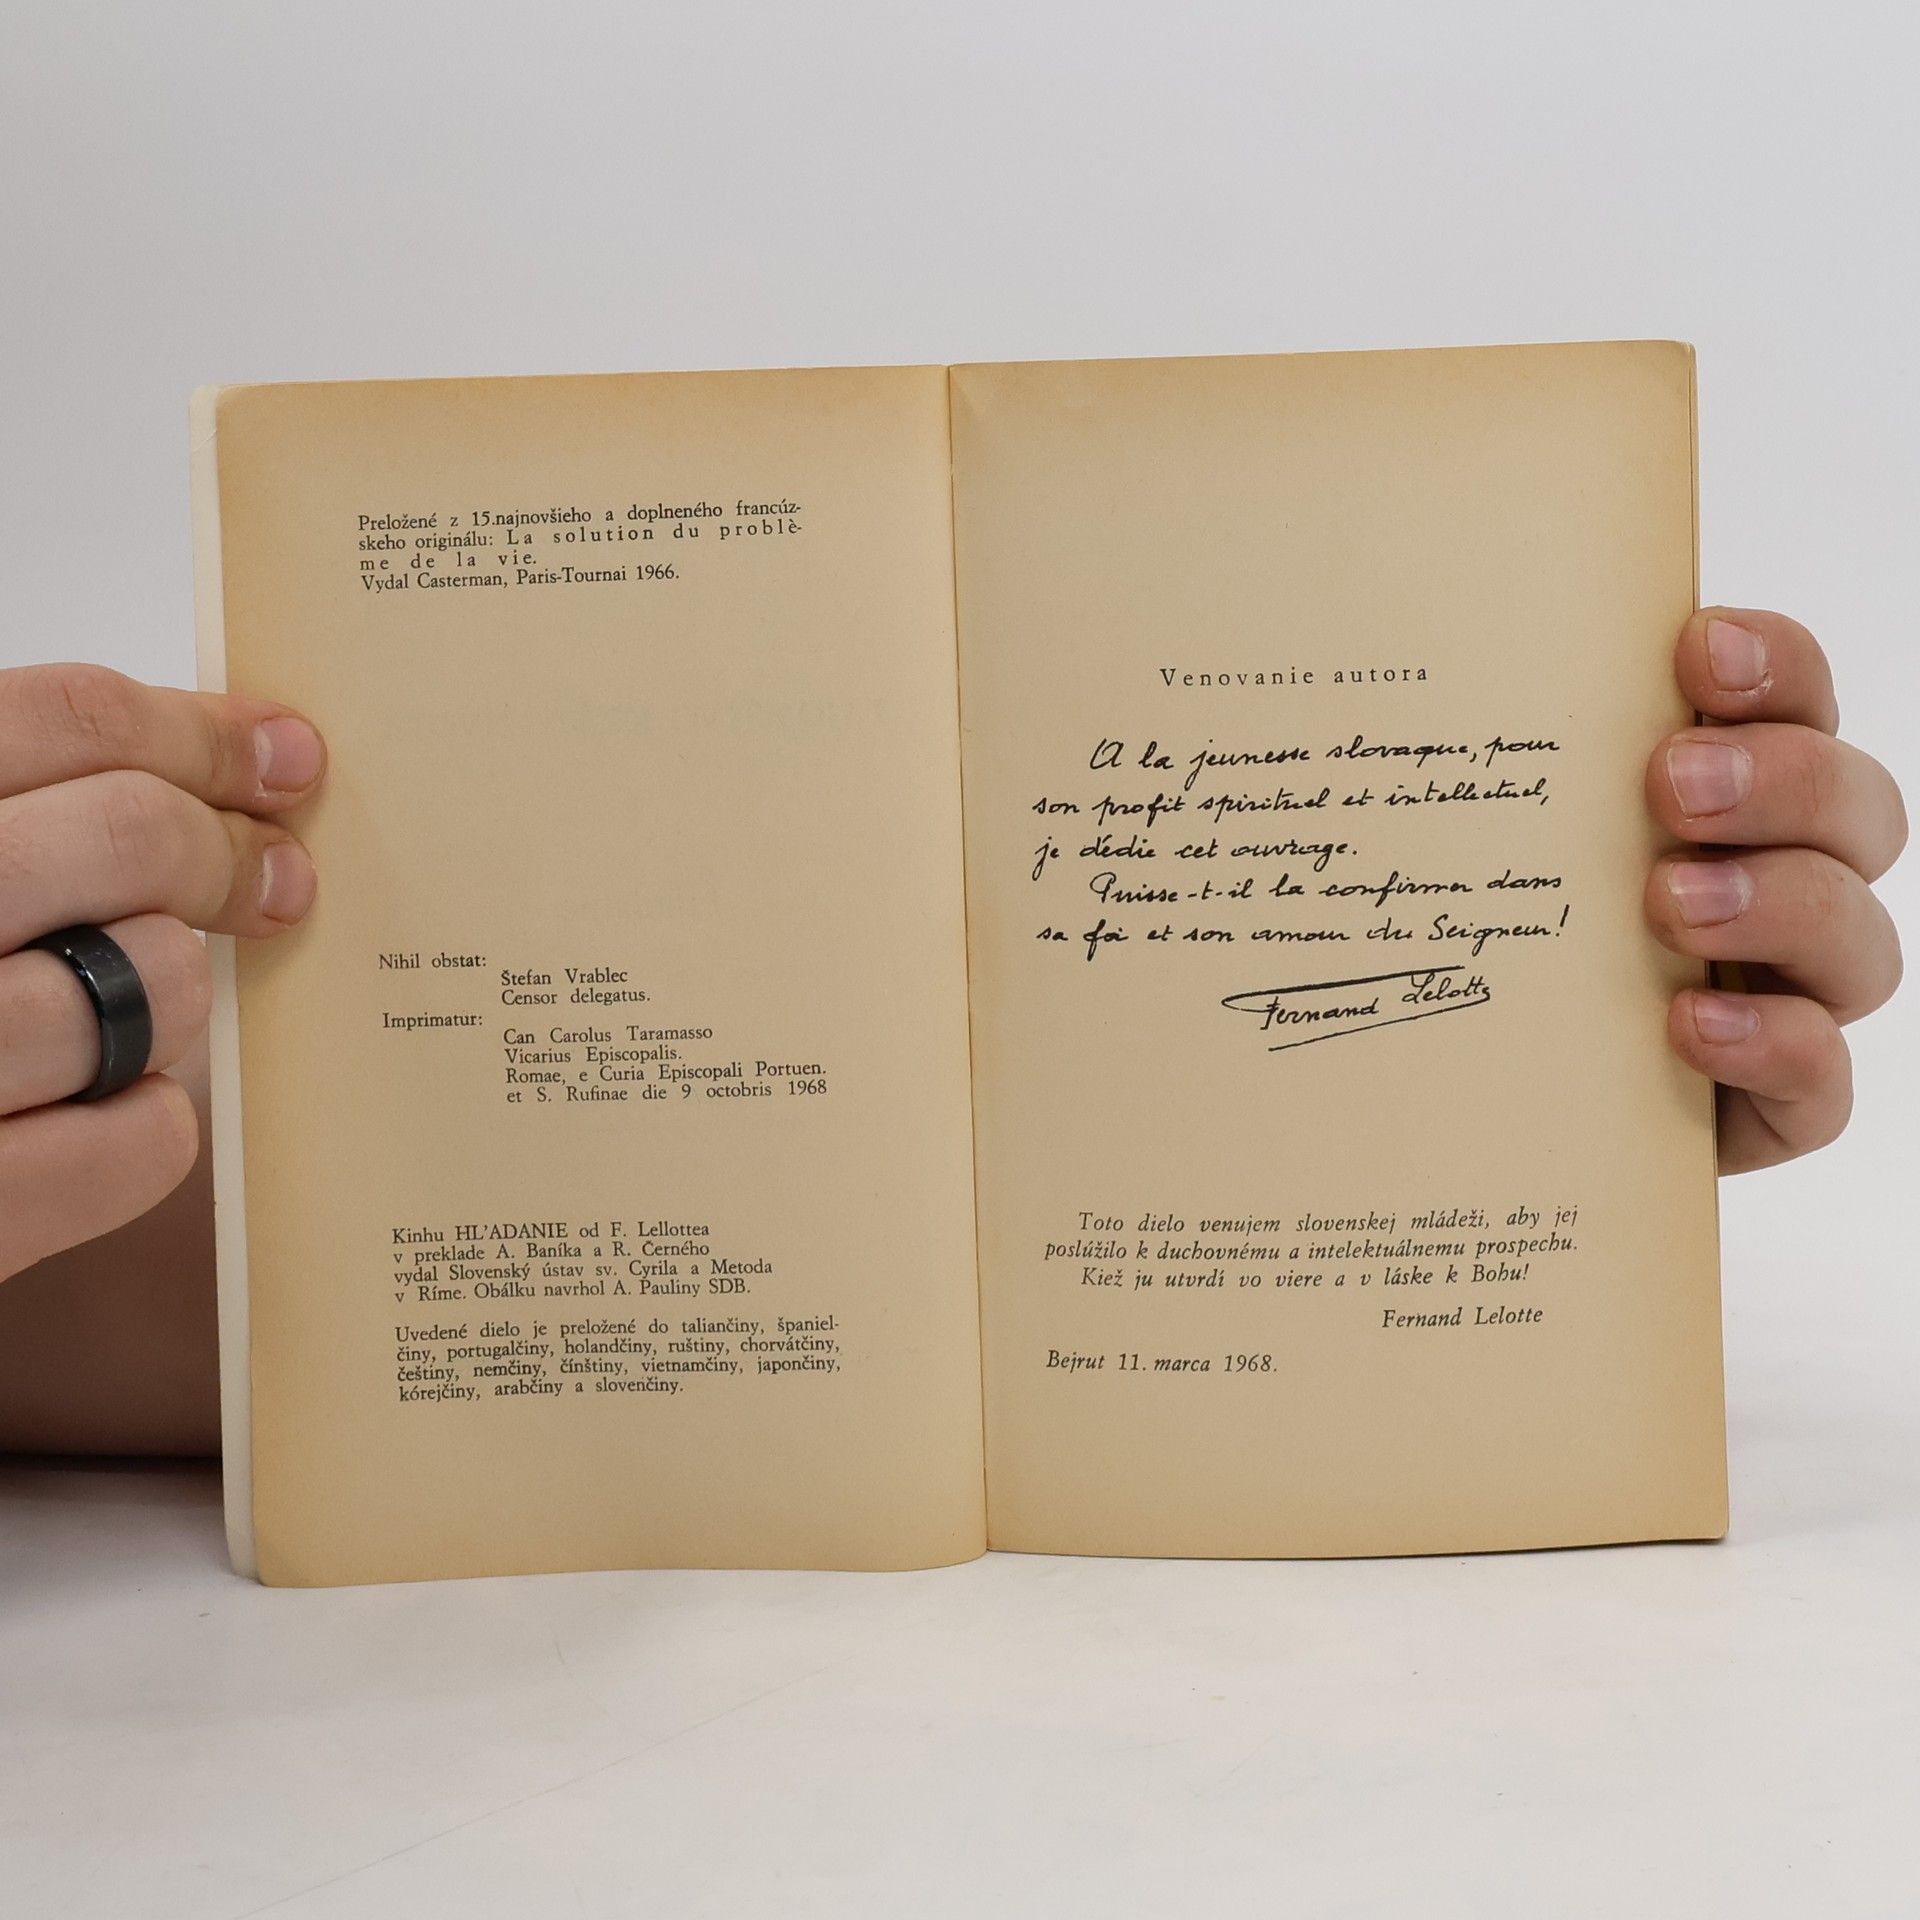 Preložené z 15.najnovšieho a doplneného francúz-
skeho originálu: La solution du problè-
me de la vie.
Vydal Casterman, Paris-Tournai 1966.
Nihil obstat:
Štefan Vrablec
Censor delegatus.
Imprimatur:
Can Carolus Taramasso
Vicarius Episcopalis.
Romae, e Curia Episcopali Portuen.
et S. Rufinae die 9 octobris 1968
Kinhu HĽADANIE od F. Lellottea
v preklade A. Baníka a R. Černého
vydal Slovenský ústav sv. Cyrila a Metoda
v Ríme. Obálku navrhol A. Pauliny SDB.
Uvedené dielo je preložené do taliančiny, španiel-
činy, portugalčiny, holandčiny, ruštiny, chorvátčiny,
češtiny, nemčiny, čínštiny, vietnamčiny, japončiny,
kórejčiny, arabčiny a slovenčiny.
Venovanie autora
A la jeunesse slovaque, pour
son profit spirituel et intellectuel,
je dédie cet ouvrage.
Puisse-t-il la confirmer dans
sa foi et son amour du Seigneur!
Fernand Lelotte
Toto dielo venujem slovenskej mládeži, aby jej
poslúžilo k duchovnému a intelektuálnemu prospechu.
Kiež ju utvrdí vo viere a v láske k Bohu!
Fernand Lelotte
Bejrut 11. marca 1968.